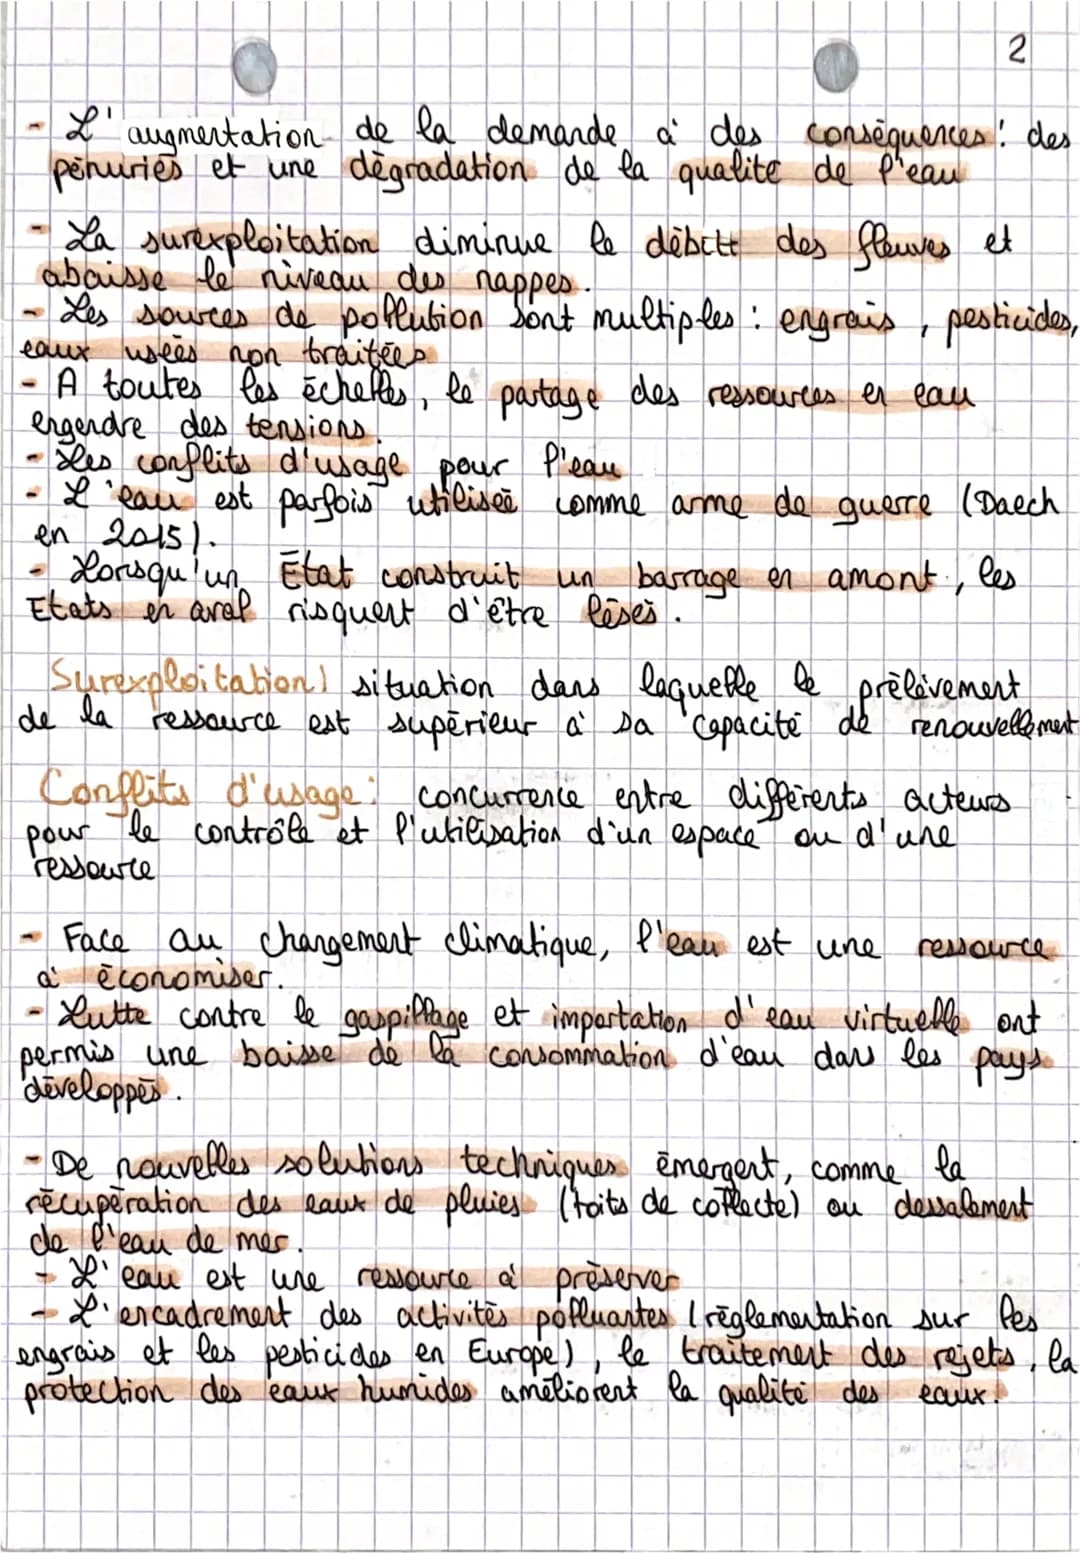 2
- L'augmentation de la demande à des conséquences : des
pénuries et une dégradation de la qualité de l'eau
- La surexploitation diminue le débitt des fleuves et
abaisse le niveau des nappes.
- Les sources de pollution sont multiples : engrais, pesticides,
eaux usées non traitées
- A toutes les échelles, le partage des ressources en eau
engendre des tensions.
- Les conflits d'usage pour l'eau
- L'eau est parfois utilisée comme arme de guerre (Daech
en 2015).
- Lorsqu'un État construit un barrage en amont, les
Etats en aval risquent d'être lésés.
Surexploitation) situation dans laquelle le prélèvement
de la ressource est supérieur à sa capacité de renouvellement
Conflits d'usage : concurrence entre différents acteurs
pour le contrôle et l'utilisation d'un espace ou d'une
ressource
- Face au changement climatique, l'eau est une ressource
à économiser.
- Lutte contre le gaspillage et importation d'eau virtuelle ont
permis une baisse de la consommation d'eau dans les pays
développés.
- De nouvelles solutions techniques émergent, comme la
récupération des eaux de pluies (toits de collecte) ou dessalement
de l'eau de mer.
- L'eau est une ressource à préserver
- L'encadrement des activités polluantes (réglementation sur les
engrais et les pesticides en Europe), le traitement des rejets, la
protection des eaux humides améliorent la qualité des eaux.